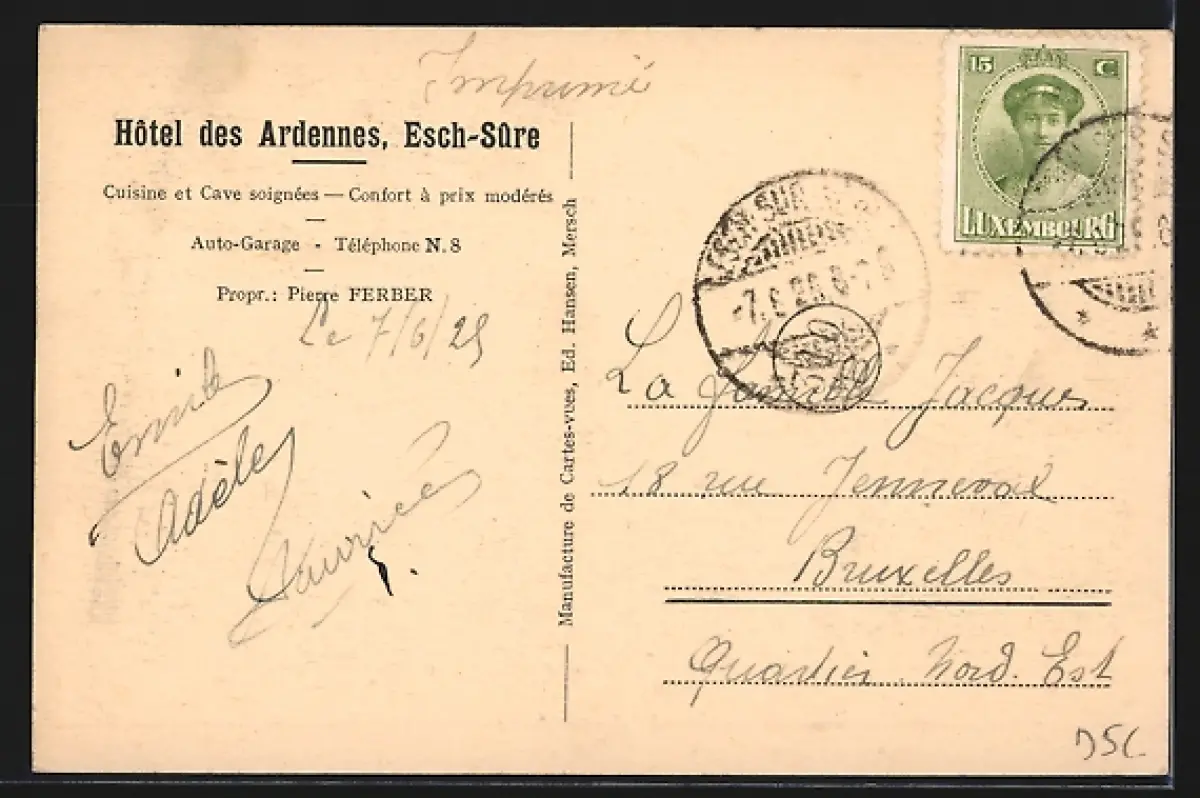 Imprimé
Hôtel des Ardennes, Esch-Sûre
Cuisine et Cave soignées — Confort à prix modérés
Auto-Garage - Téléphone N. 8
Propr.: Pierre FERBER
Le 7/6/25
Emile
Adèle
Maurice
Manufacture de Cartes-vues, Ed. Hansen, Mersch
15 C
LUXEMBOURG
ESCH-SUR-
-7.6.25.8-
La famille Jacques
18 rue Jenneval
Bruxelles
Quartier Nord. Est